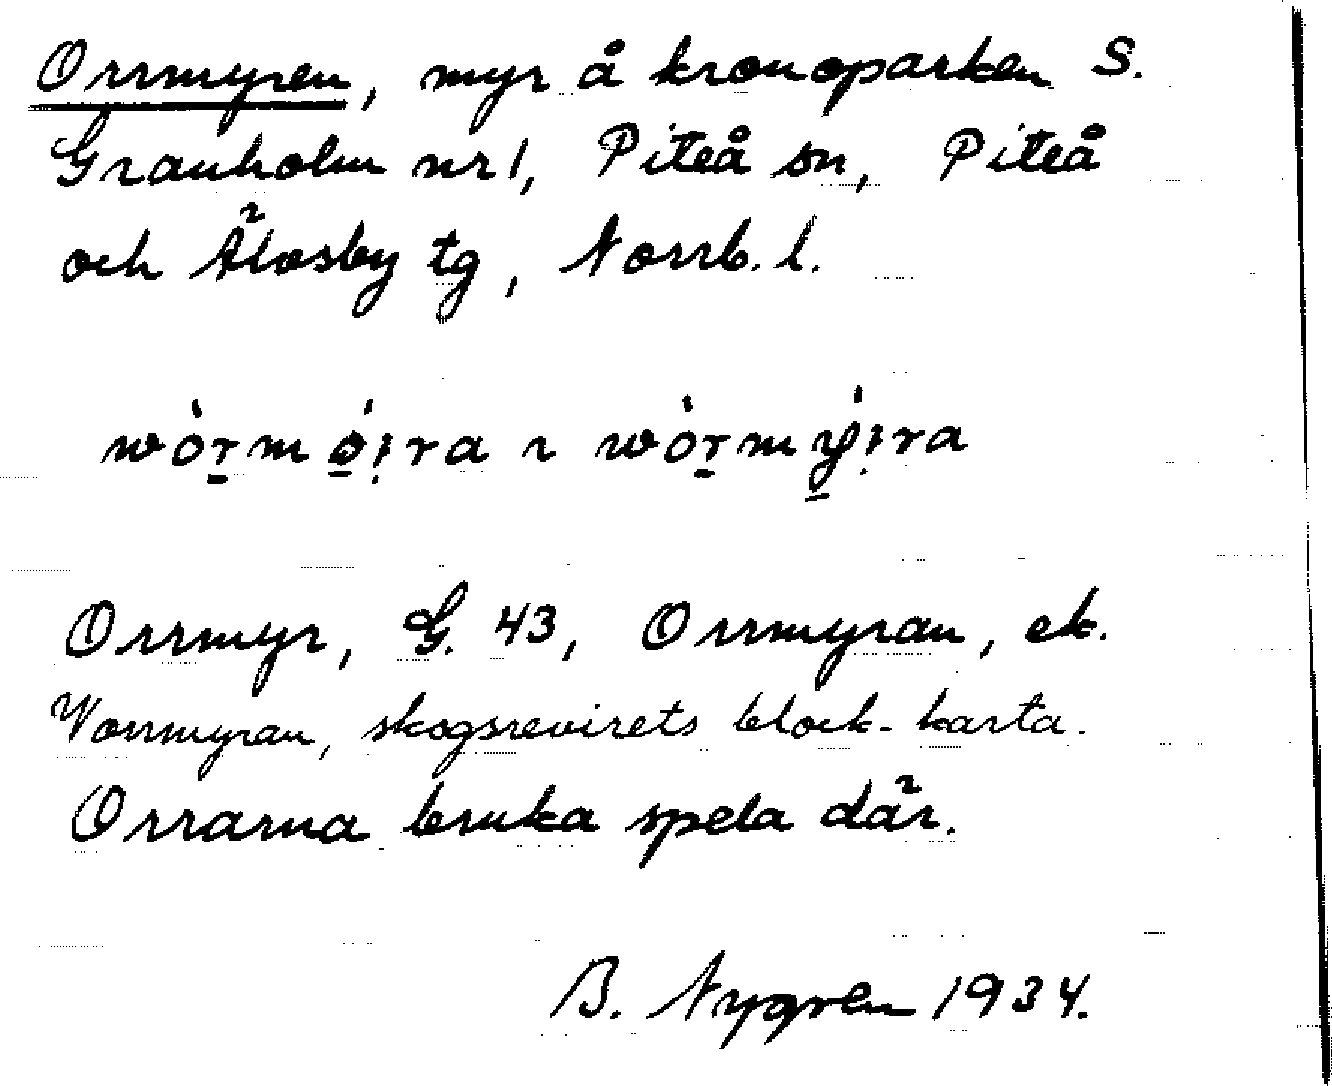 Orrmyren, myr å kronoparken S.
Granholm nr 1, Piteå sn, Piteå
och Älvsby tg, Norrb. l.
wòr̠m ǿ̠ı̣ra ~ wòr̠m ý̠ı̣ra
Orrmyr, G. 43, Orrmyran, ek.
Vorrmyran, skogsrevirets block-karta.
Orrarna bruka spela där.
B. Nygren 1934.